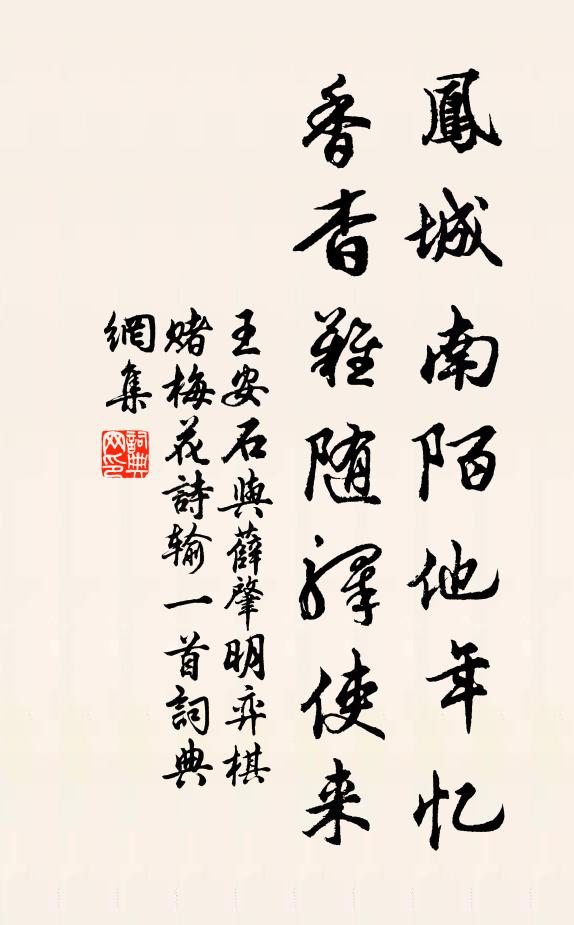 鳳城南陌他年忆
香杳難随驛使来
王安石與薛肇明弈棋
赌梅花詩输一首詞典
網集
詞典网印